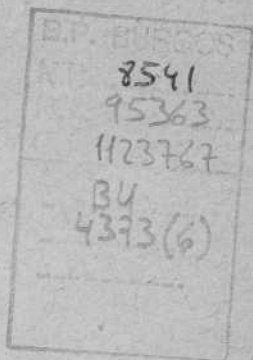 B.P. BURGOS
N.T. 8541
95363
C. 1123767
BU
4373(6)